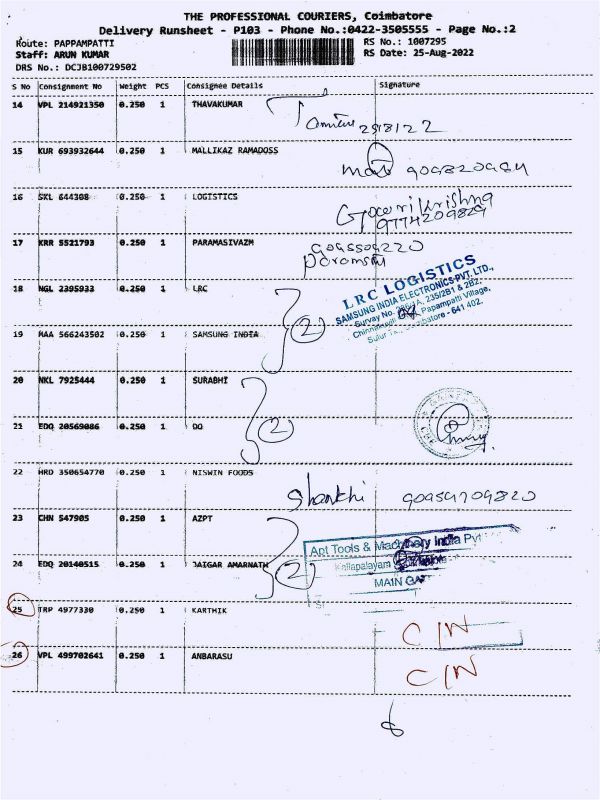 THE PROFESSIONAL COURIERS, Coimbatore
Delivery Runsheet - P103 - Phone No.:0422-3505555 - Page No.:2
Route: PAPPAMPATTI RS No.: 1007295
Staff: ARUN KUMAR RS Date: 25-Aug-2022
DRS No.: DCJB100729502
S No Consignment No Weight PCS Consignee Details Signature
14 VPL 214921350 0.250 1 THAVAKUMAR
15 KUR 693932644 0.250 1 MALLIKAZ RAMADOSS
16 SKL 644308 0.250 1 LOGISTICS
Gowrikrishna
9774209829
17 KRR 5521793 0.250 1 PARAMASIVAZM
9095509220
18 NGL 2395933 0.250 1 LRC
LRC LOGISTICS
SAMSUNG INDIA ELECTRONICS PVT. LTD.,
Survay No. 235/2B1 & 2B2,
Pappampatti Village,
Sulur - 641 402.
2
19 MAA 566243502 0.250 1 SAMSUNG INDIA
20 NKL 7925444 0.250 1 SURABHI
2
21 EDQ 20569086 0.250 1 QQ
22 HRD 350654770 0.250 1 NISWIN FOODS
Shankhi 90959709820
23 CHN 547905 0.250 1 AZPT
Apt Tools & Machinery India Pvt
2
24 EDQ 20140515 0.250 1 JAIGAR AMARNATH
MAIN GAT
25 TRP 4977330 0.250 1 KARTHIK C/N
26 VPL 499702641 0.250 1 ANBARASU C/N